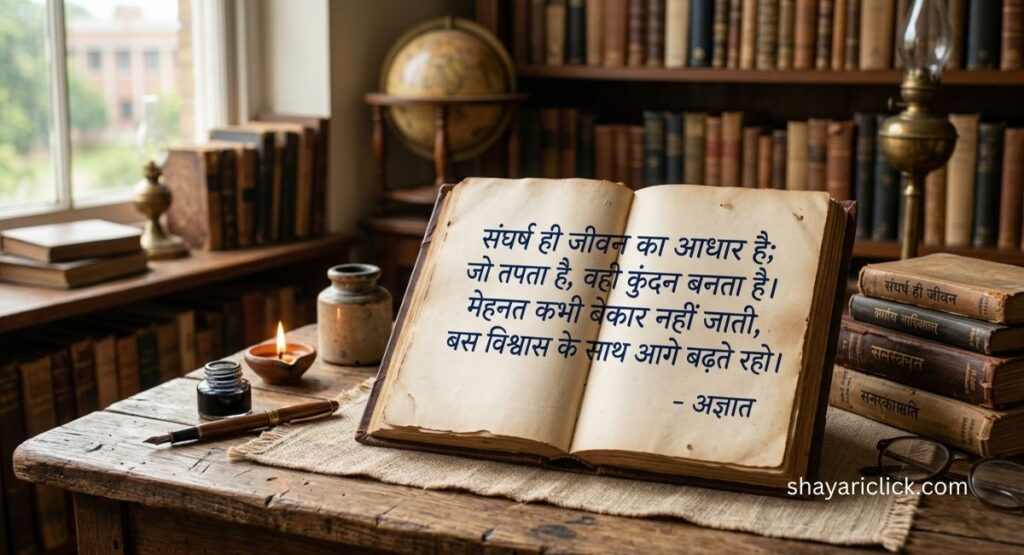 संघर्ष ही जीवन का आधार है;
जो तपता है, वही कुंदन बनता है।
मेहनत कभी बेकार नहीं जाती,
बस विश्वास के साथ आगे बढ़ते रहो।
- अज्ञात
संघर्ष ही जीवन
shayariclick.com